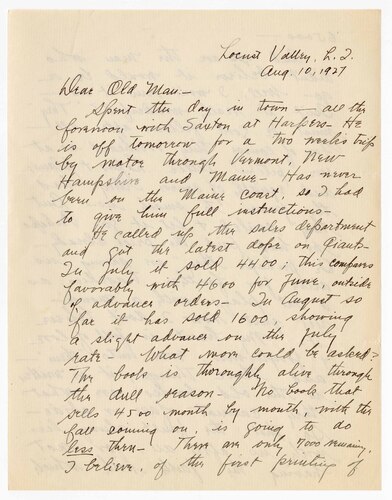 Locust Valley, L.I.
Aug. 10, 1927
Dear Old Man,—
Spent the day in town — all the
forenoon with Saxton at Harpers— He
is off tomorrow for a two week's trip
by motor through Vermont, New
Hampshire and Maine— Has never
been on the Maine coast, so I had
to give him full instructions—
He called up the sales department
and got the latest dope on Giants—
In July it sold 4400; this compares
favorably with 4600 for June, outside
of advance orders— In August so
far it has sold 1600, showing
a slight advance on the July
rate— What more could be asked?
The book is thoroughly alive through
the dull season— No book that
sells 4500 month by month, with the
fall coming on, is going to do
less then— There are only 7000 remaining,
I believe, of the first printing of